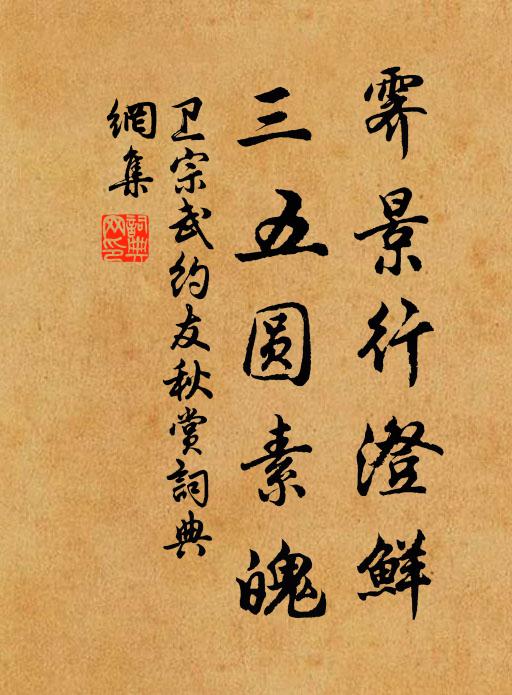 霁景行澄鮮
三五圆素魄
卫宗武约友秋赏詞典
網集
詞典
网印